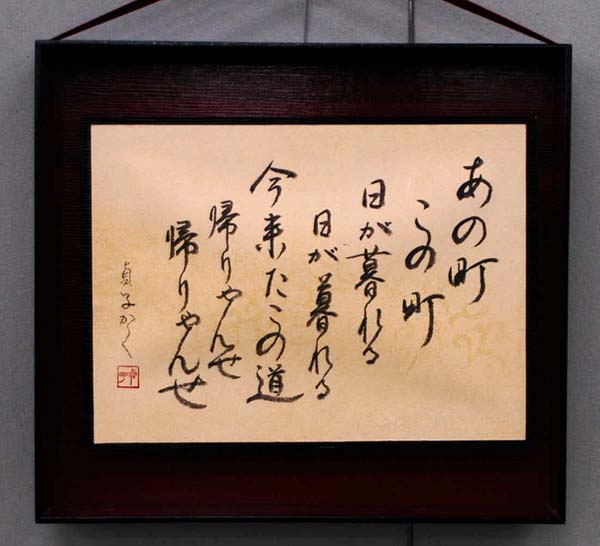 あの町
この町
日が暮れる
日が暮れる
今来たこの道
帰りゃんせ
帰りゃんせ
貞子かく